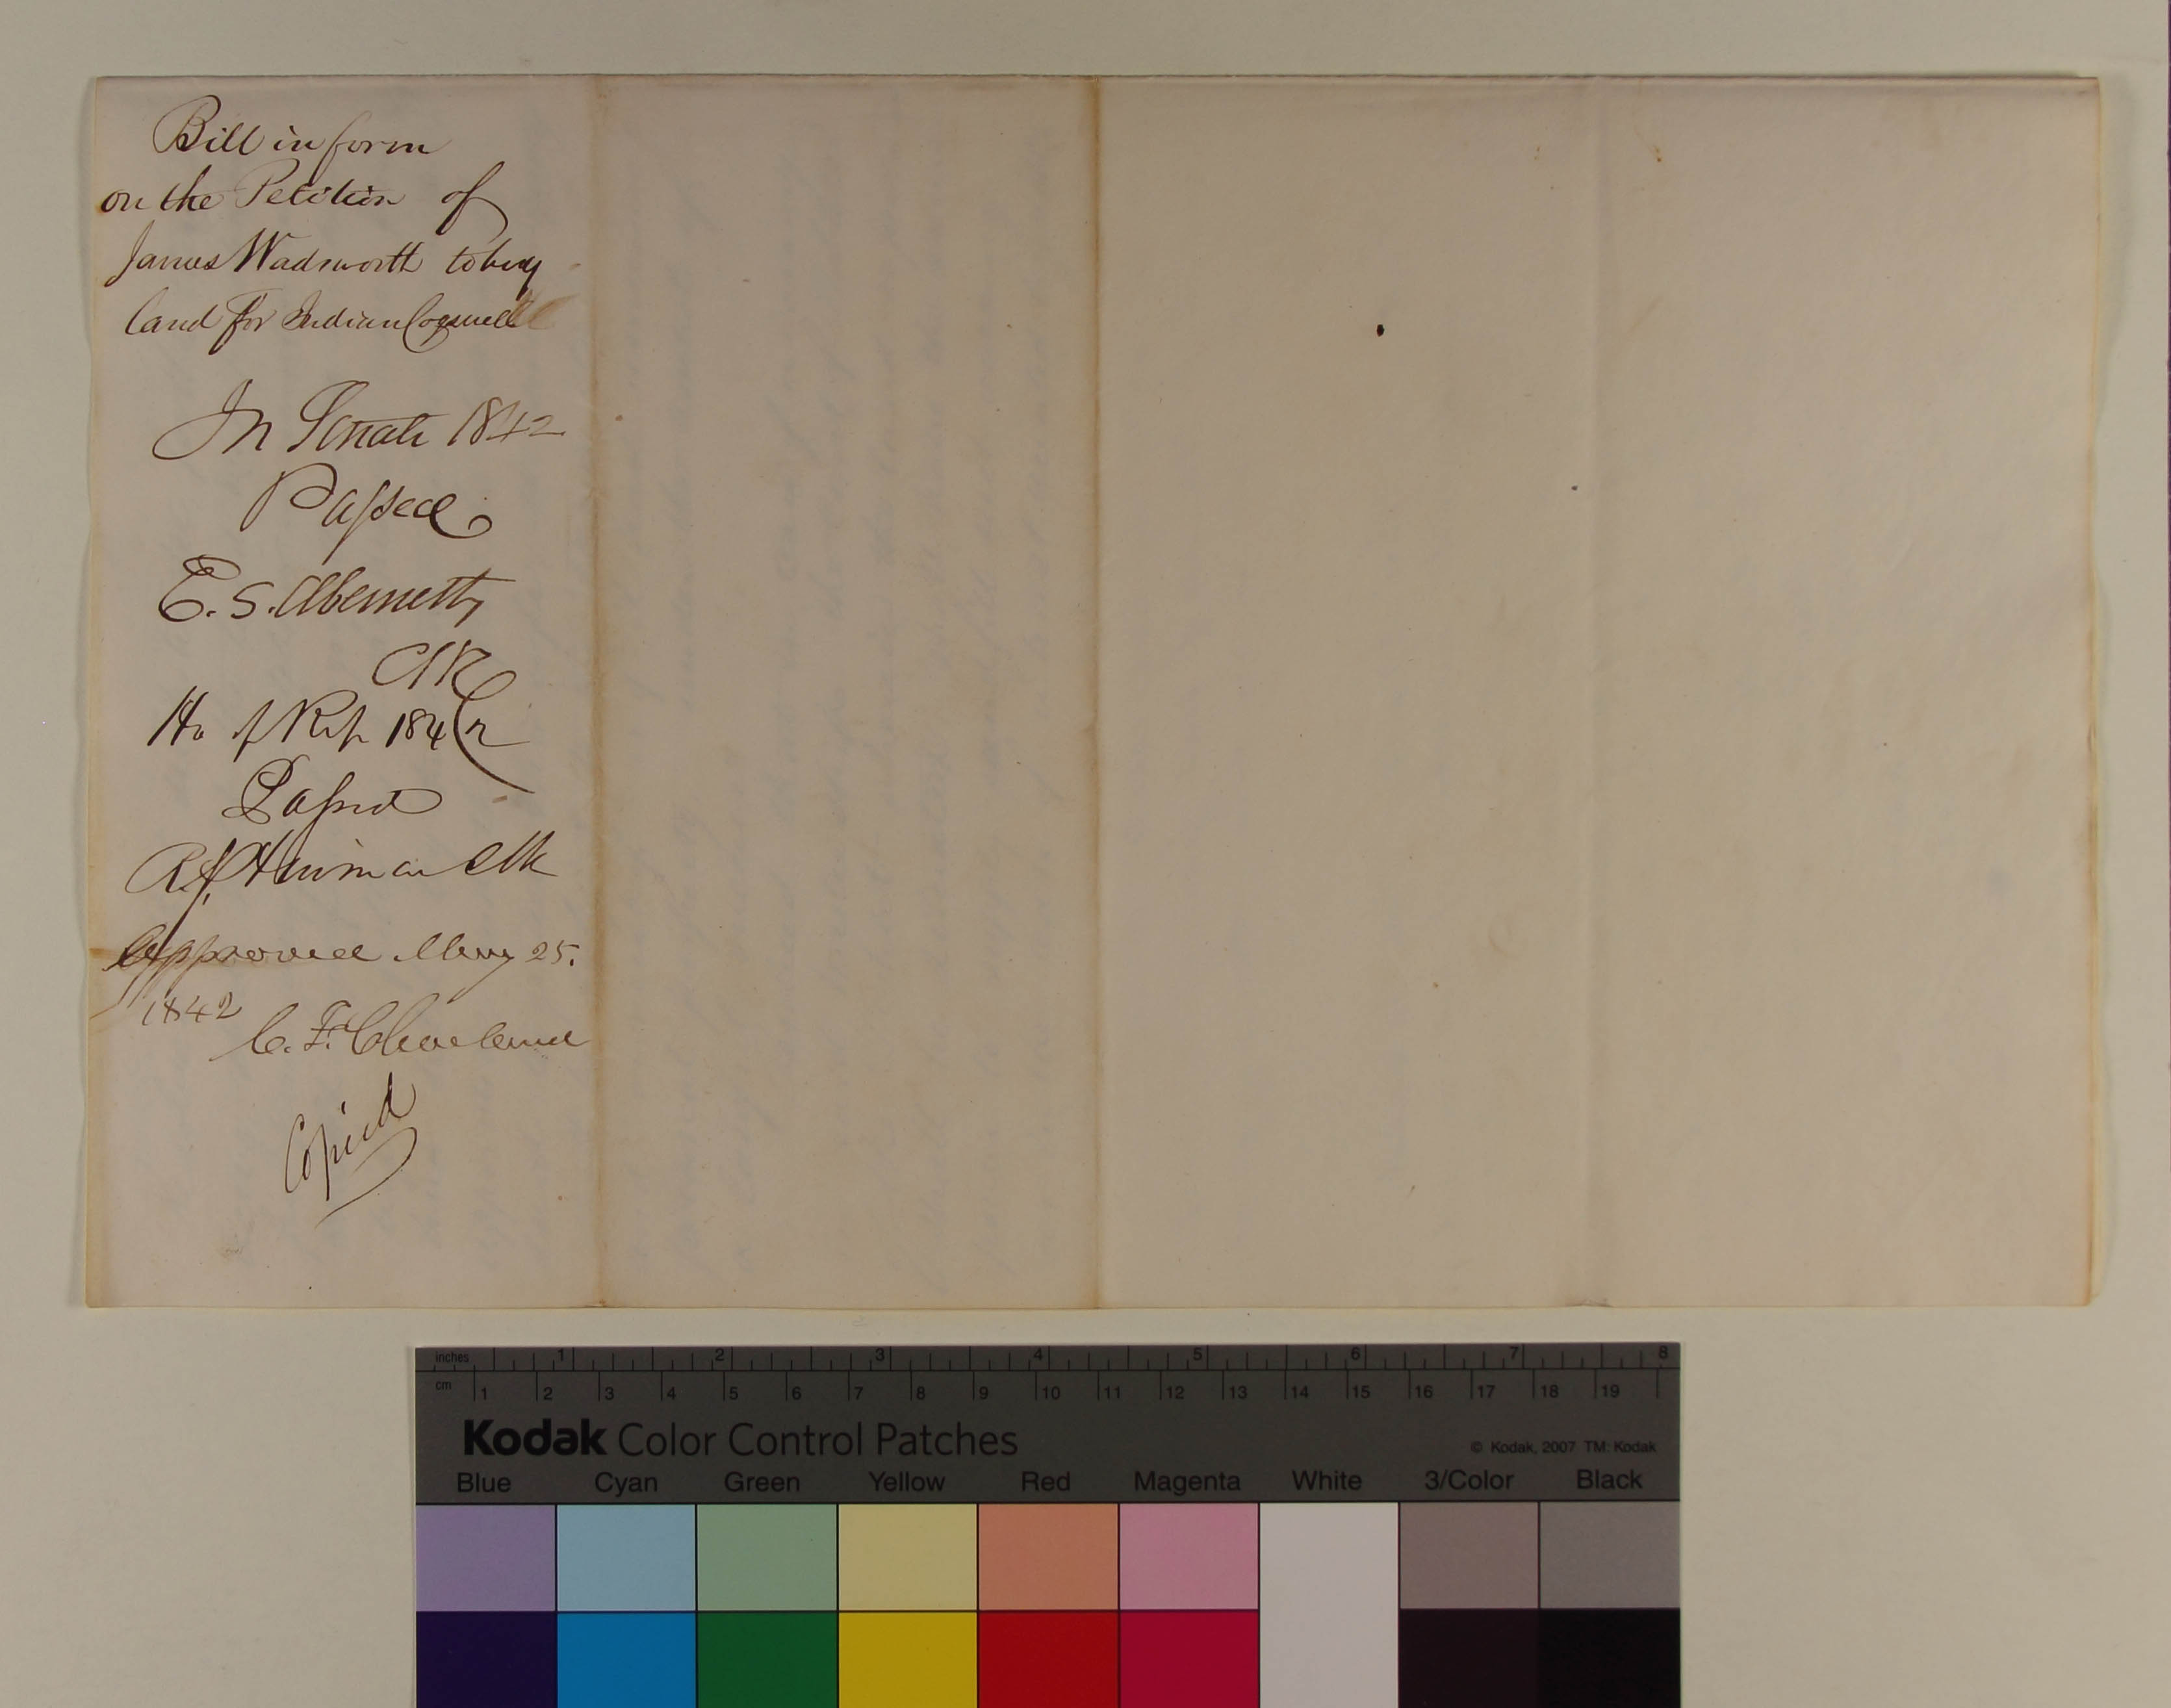 Bill in form
on the Petition of
James Wadsworth to buy
land for Indian Cogswell
In Senate 1842
Passed
E. S. Abernethy
Clk
Ho of Rep 1842
Passed
R. R. Hinman Clk
Approved May 25.
1842
C. F. Cleveland
Copied
inches 1 2 3 4 5 6 7 8
cm 1 2 3 4 5 6 7 8 9 10 11 12 13 14 15 16 17 18 19
Kodak Color Control Patches
© Kodak, 2007 TM: Kodak
Blue Cyan Green Yellow Red Magenta White 3/Color Black